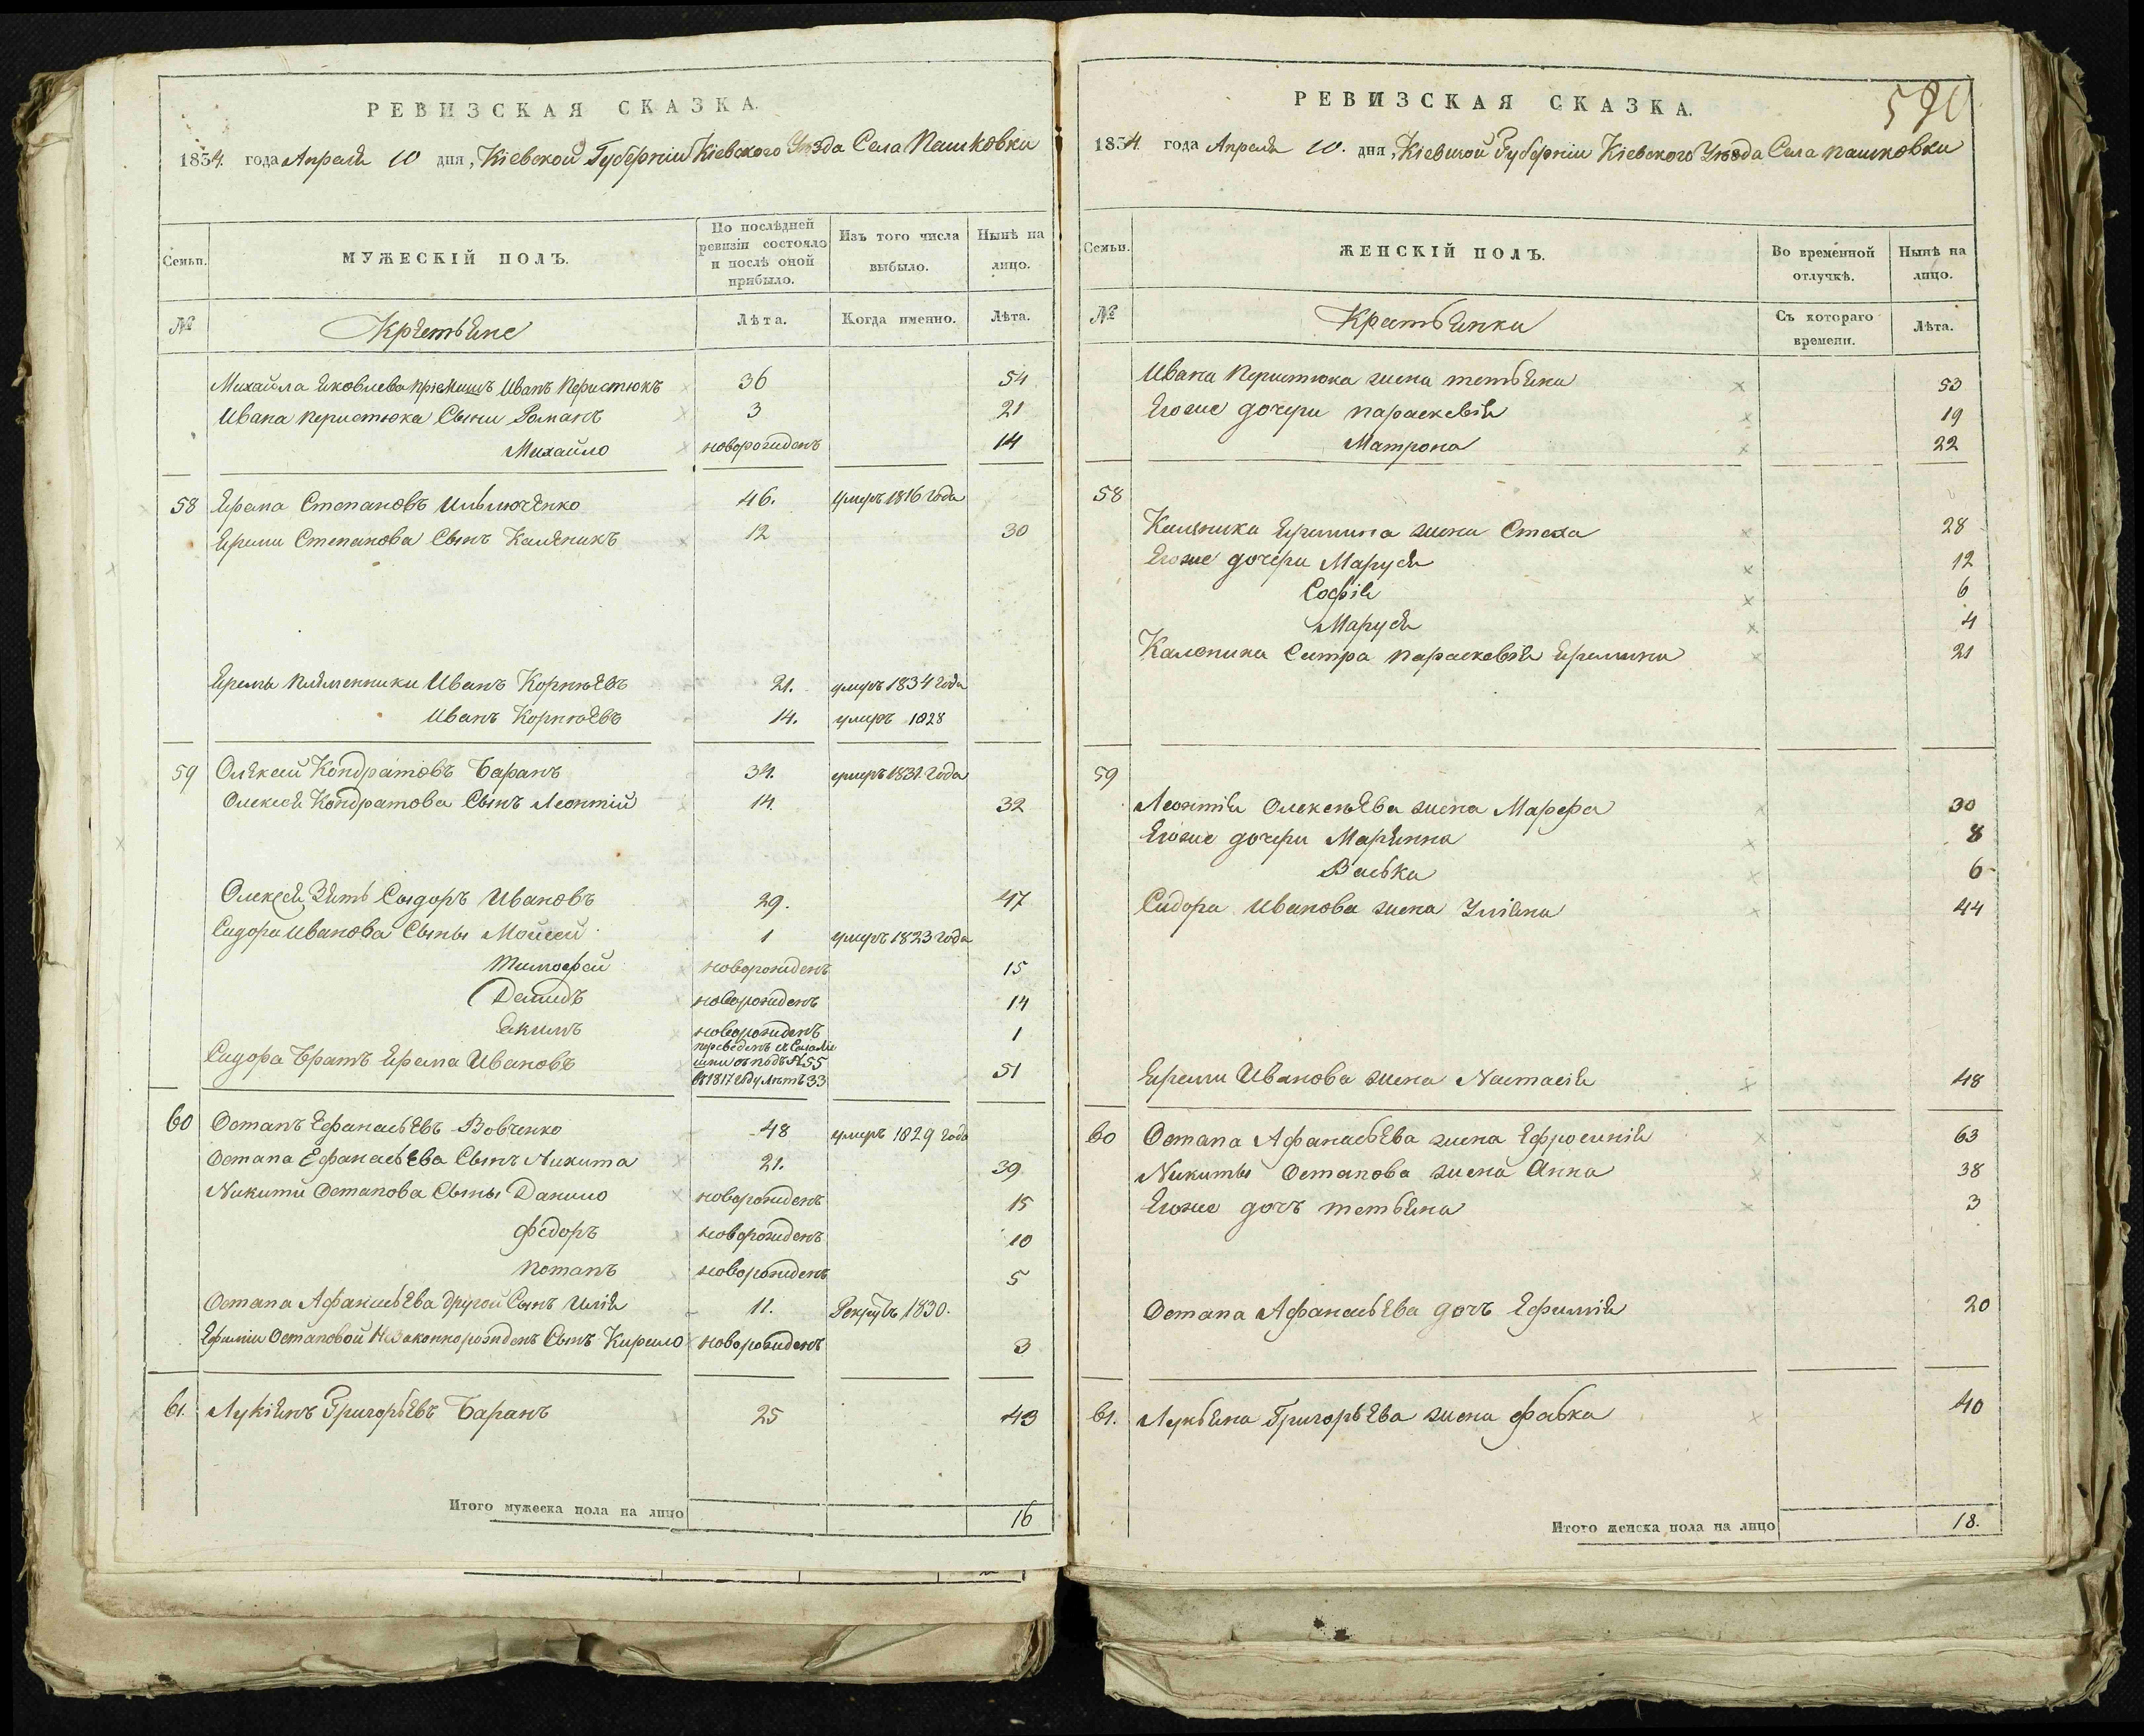 РЕВИЗСКАЯ СКАЗКА.
1834 года Апреля 10 дня, Кіевской Губерніи Кіевского Уѣзда Села Пашковки
Семьи.
МУЖЕСКІЙ ПОЛЪ.
По послѣдней ревизіи состояло и послѣ оной прибыло.
Изъ того числа выбыло.
Нынѣ на лицо.
№
Крѣстьяне
Лѣта.
Когда именно.
Лѣта.
Михайла Яковлева пріемишъ Иванъ Перистюкъ 36 54
Ивана Перистюка Сыни Романъ 3 21
Михайло новорожденъ 14
58 Ярема Степановъ Ильюченко 46. умеръ 1816 года
Яреми Степанова Сынъ Каленикъ 12 30
Яремы племенники Иванъ Корнѣевъ 21. умеръ 1834 года
Иванъ Корнѣевъ 14. умеръ 1828
59 Олексей Кондратовъ Баранъ 34. умеръ 1831. года
Олексея Кондратова Сынъ Леонтій 14. 32
Олексея Зять Сыдоръ Ивановъ 29. 47
Сидора Иванова Сыны Мойсей 1 умеръ 1823 года
Тимофей новорожденъ 15
Демидъ новорожденъ 14
Якимъ новорожденъ 1
Сидора Братъ Ярема Ивановъ переведенъ съ подъ № 55 въ 1817 году лѣтъ 33 51
60 Остапъ Ефанасьевъ Вовченко 48 умеръ 1829 года
Остапа Ефанасьева Сынъ Никита 21. 39
Никити Остапова Сыны Данило новорожденъ 15
Федоръ новорожденъ 10
Потапъ новорожденъ 5
Остапа Афанасьева другой Сынъ Илія 11. Рекрутъ 1830.
Ефиміи Остаповой Незаконнорожденъ Сынъ Кирило новорожденъ 3
61. Лукіянъ Григорьевъ Баранъ 25 43
Итого мужеска пола на лицо 16
РЕВИЗСКАЯ СКАЗКА.
1834 года Апреля 10. дня, Кіевской Губерніи Кіевского Уѣзда Села Пашковки
Семьи.
ЖЕНСКІЙ ПОЛЪ.
Во временной отлучкѣ.
Нынѣ на лицо.
№
Крестьянки
Съ котораго времени.
Лѣта.
Ивана Перистюка жена Тетьяна 53
Егоже дочери Параскевія 19
Матрона 22
58
Каленика Яремина жена Стеха 28
Егоже дочери Маруся 12
Софія 6
Маруся 4
Каленика Сестра Параскевія Яремина 21
59
Леонтія Олексѣева жена Марфа 30
Егоже дочери Марянна 8
Васька 6
Сидора Иванова жена Уліяна 44
Яреми Иванова жена Настасія 48
60 Остапа Афанасьева жена Ефросинія 63
Никиты Остапова жена Анна 38
Егоже дочъ Тетьяна 3
Остапа Афанасьева дочъ Ефимія 20
61. Лукьяна Григорьева жена Фавка 40
Итого женска пола на лицо 18.